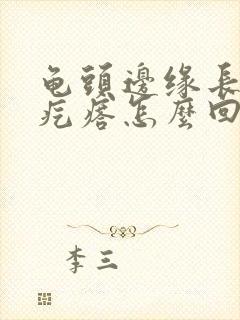 龟頭邊缘長
疙瘩怎麼回
李三